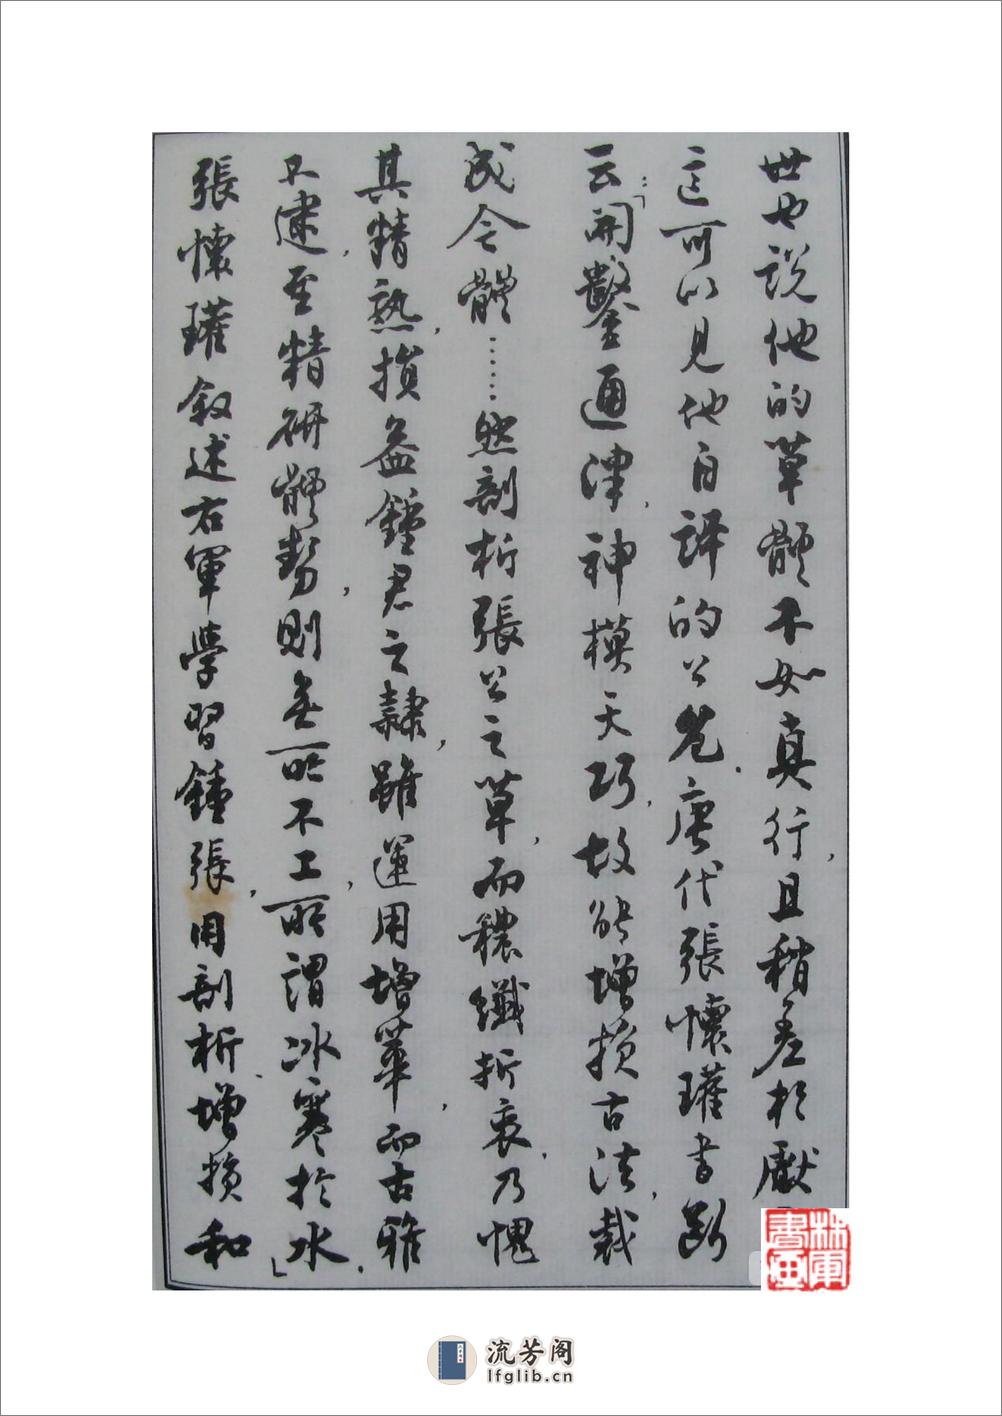 世也說他的草體不如真行，且稍差於獻
這可以見他自評的公允．唐代張懷瓘書斷
云：「開鑿通津，神模天巧，故能增損古法，裁
成今體……然剖析張公之草，而穠纖折衷，乃愧
其精熟，損益鍾君之隸，雖運用增華，而古雅
不逮，至精研體勢，則無所不工，所謂冰寒於水」．
張懷瓘敘述右軍學習鍾張，用剖析、增損和
林軍書畫
流芳阁
lfglib.cn